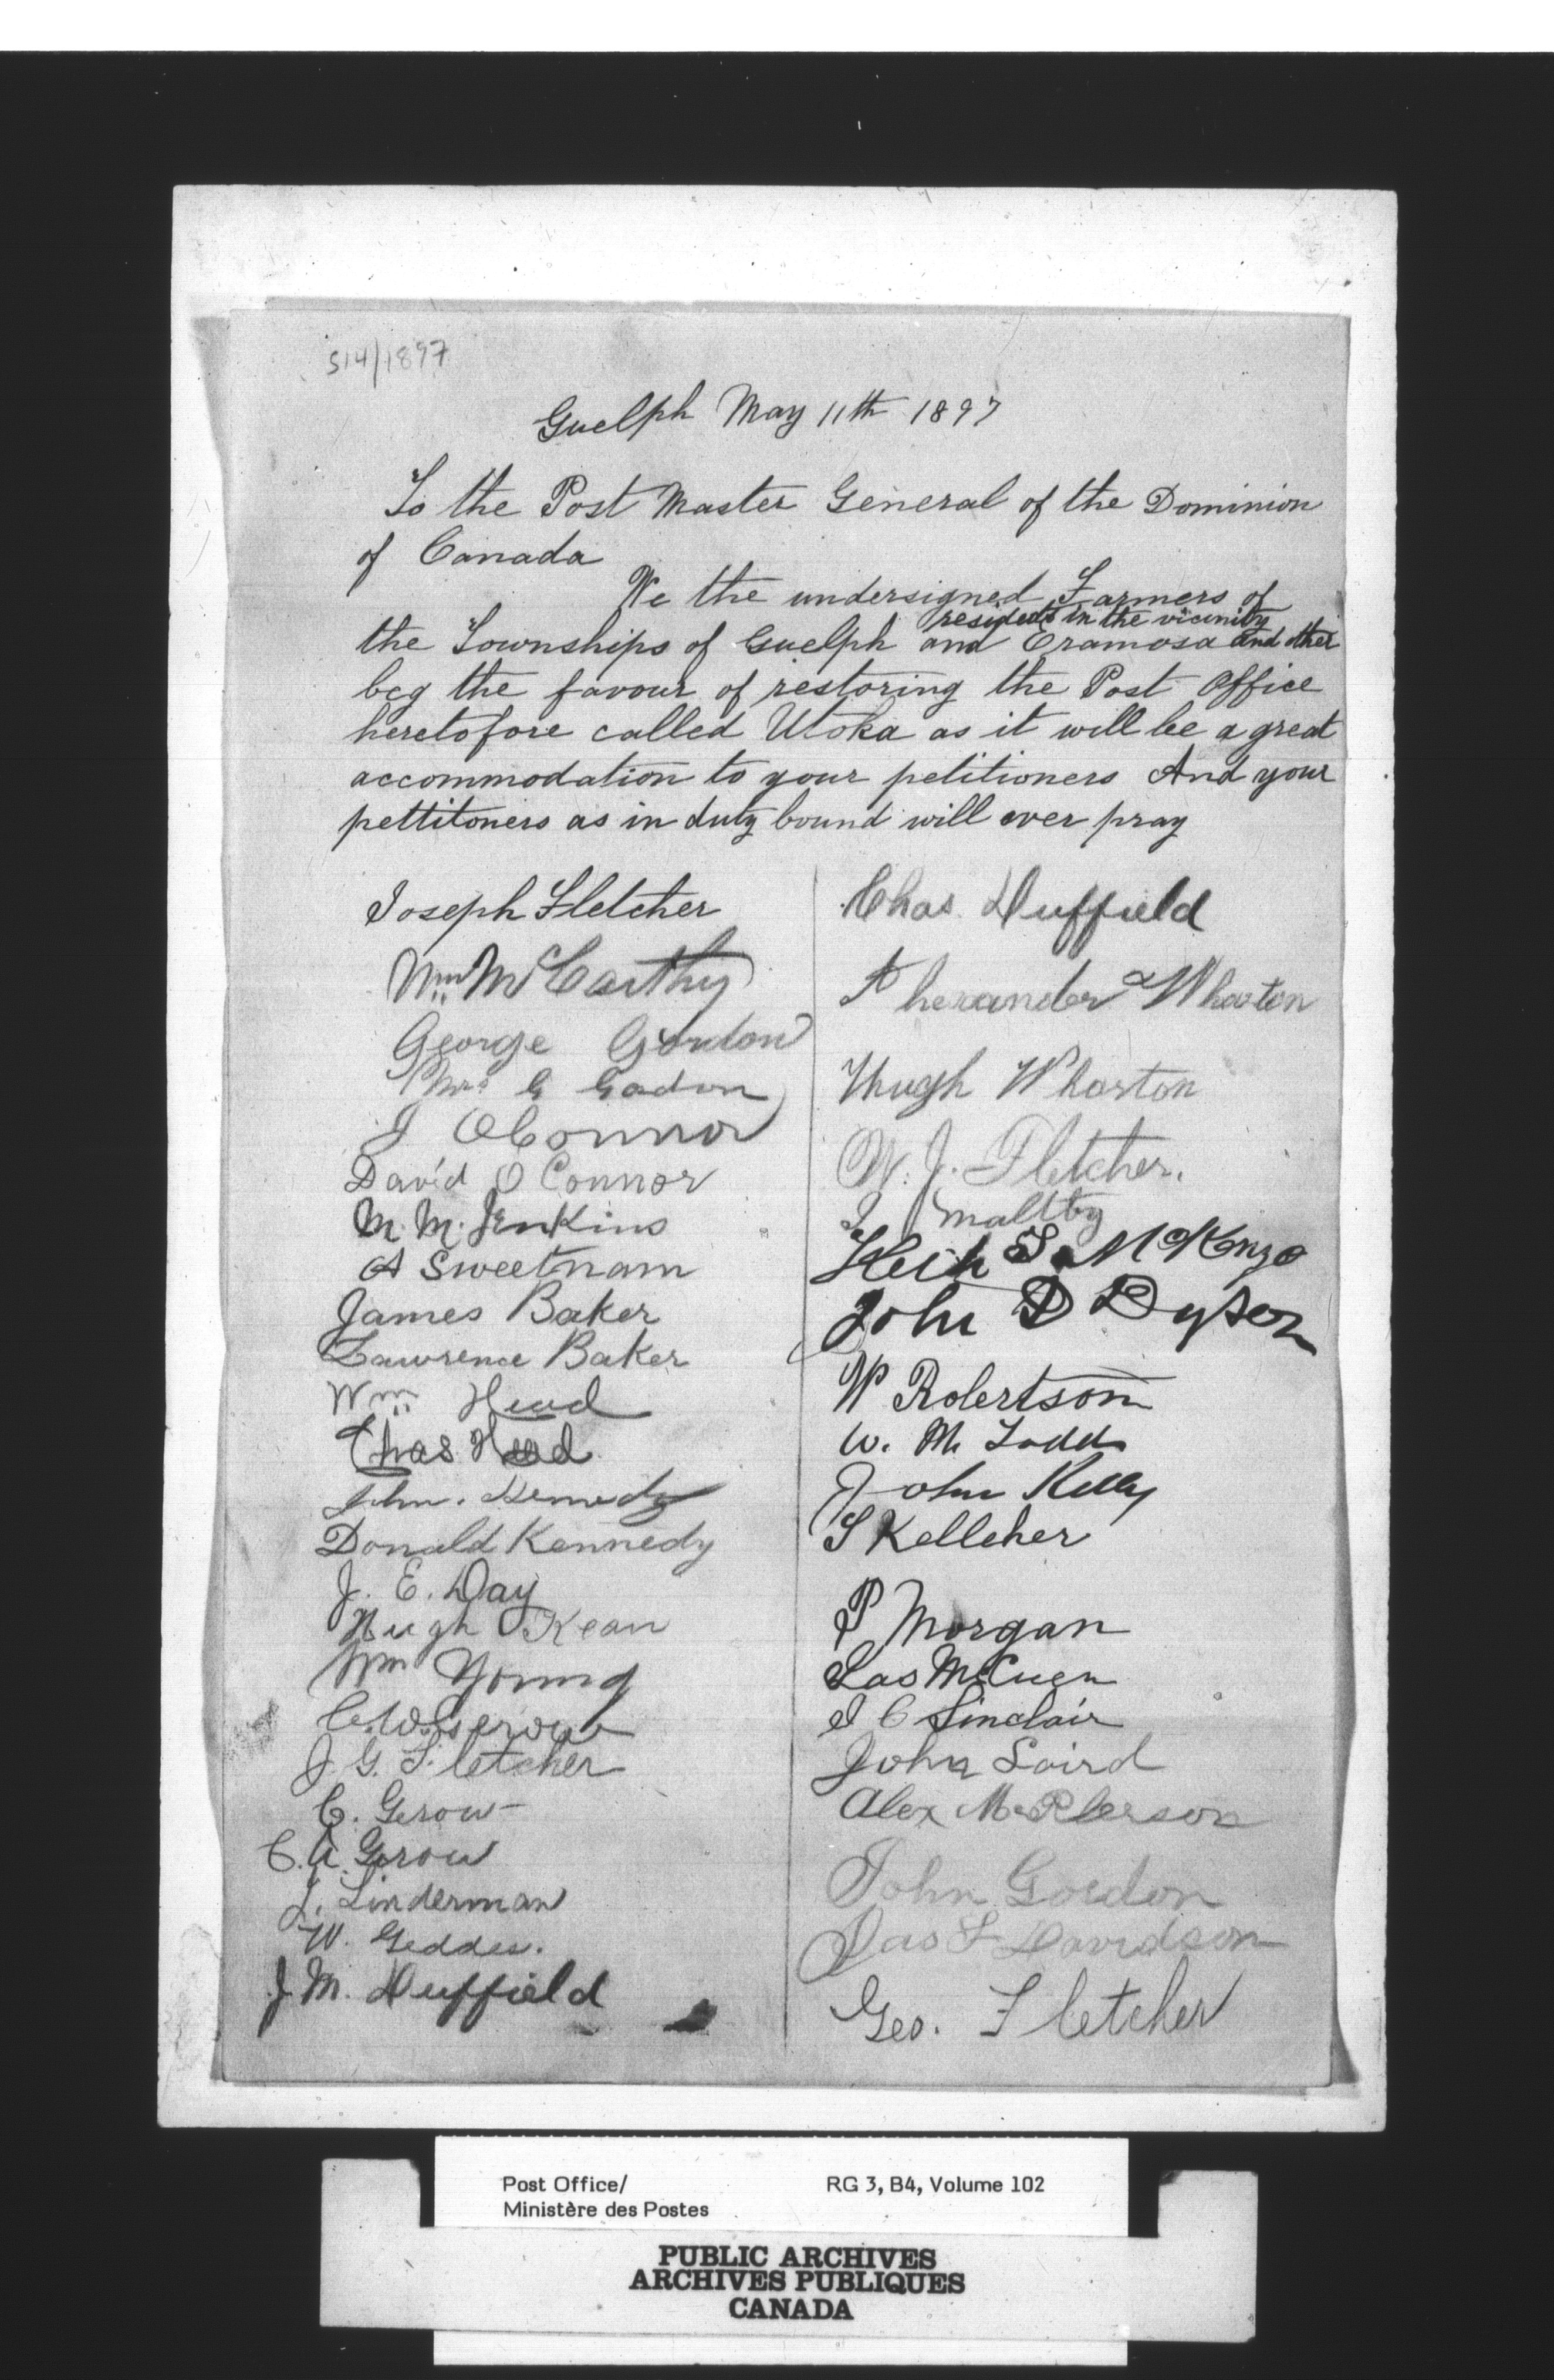 514/1897
Guelph May 11th 1897
To the Post Master General of the Dominion
of Canada
We the undersigned Farmers of
the Townships of Guelph and Eramosa and other
residents in the vicinity
beg the favour of restoring the Post Office
heretofore called Utoka as it will be a great
accommodation to your petitioners And your
pettitoners as in duty bound will ever pray
Joseph Fletcher
Wm McCarthy
George Gordon
Mrs G Gordon
J OConnor
David O Connor
M. M. Jenkins
A Sweetnam
James Baker
Lawrence Baker
Wm Head
Chas Head
John Kennedy
Donald Kennedy
J. E. Day
Hugh Kean
Wm Young
C. W. Gerow
J. G. Fletcher
C. Gerow
C. A. Gerow
J. Linderman
W. Geddes.
J. M. Duffield
Chas. Duffield
Alexander Wharton
Hugh Wharton
W. J. Fletcher.
J Maltby
S. McKenzo
John D Dyson
W Robertson
W. M. Todd
John Kelly
S Kelleher
P Morgan
Jas McCuen
J C Sinclair
John Laird
Alex McPherson
John Gordon
Jas F Davidson
Geo. Fletcher
Post Office/
Ministère des Postes
RG 3, B4, Volume 102
PUBLIC ARCHIVES
ARCHIVES PUBLIQUES
CANADA